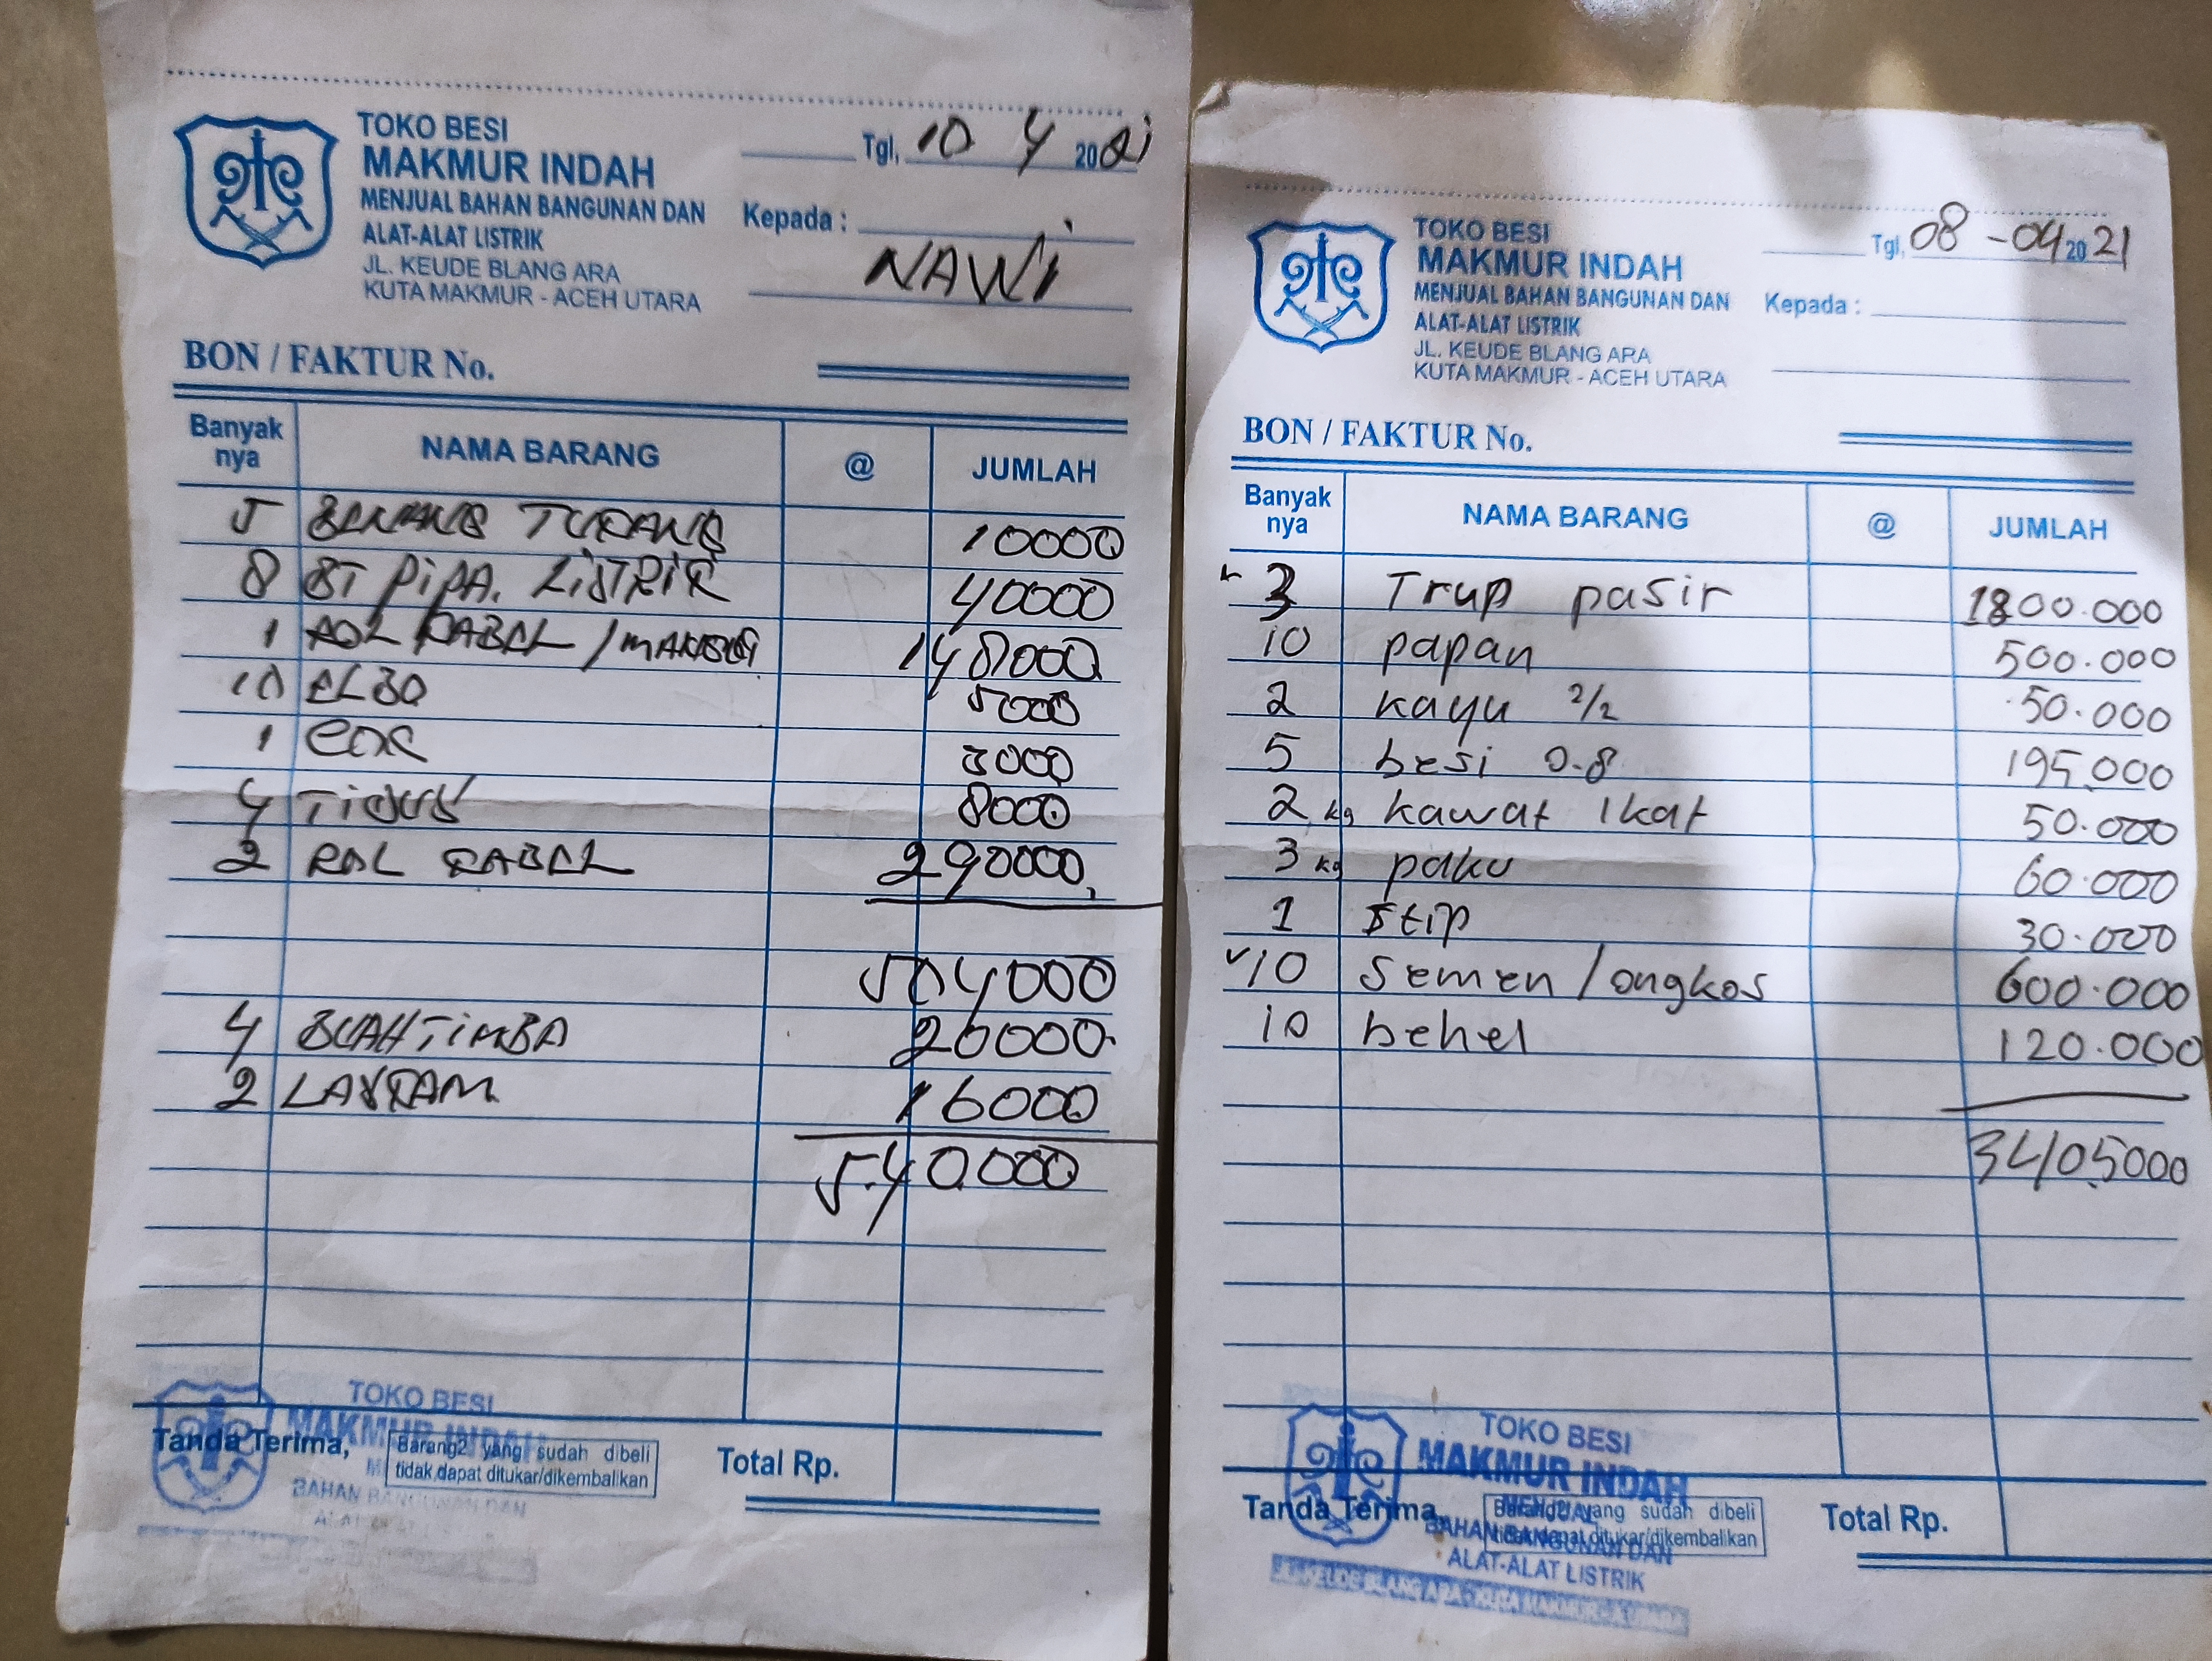 TOKO BESI
MAKMUR INDAH
MENJUAL BAHAN BANGUNAN DAN
ALAT-ALAT LISTRIK
JL. KEUDE BLANG ARA
KUTA MAKMUR - ACEH UTARA
Tgl, 10 4 2021
Kepada :
NAWI
BON / FAKTUR No.
Banyak nya NAMA BARANG @ JUMLAH
5 10000
8 BT PIPA. LISTRIK 40000
1 ROL KABEL / 148000
10 ELBO 5000
1 3000
4 8000
2 ROL KABEL 290000,
504000
4 BUAH TIMBA 20000
2 16000
540.000
TOKO BESI
MAKMUR INDAH
BAHAN BANGUNAN DAN
Tanda Terima,
Barang2 yang sudah dibeli
tidak dapat ditukar/dikembalikan
Total Rp.
TOKO BESI
MAKMUR INDAH
MENJUAL BAHAN BANGUNAN DAN
ALAT-ALAT LISTRIK
JL. KEUDE BLANG ARA
KUTA MAKMUR - ACEH UTARA
Tgl, 08-04 2021
Kepada :
BON / FAKTUR No.
Banyak nya NAMA BARANG @ JUMLAH
3 Trup pasir 1800.000
10 papan 500.000
2 kayu 2/2 50.000
5 besi 0.8 195.000
2 kg kawat Ikat 50.000
3 kg paku 60.000
1 Stip 30.000
10 Semen / ongkos 600.000
10 behel 120.000
3405000
TOKO BESI
MAKMUR INDAH
MENJUAL
BAHAN BANGUNAN DAN
ALAT-ALAT LISTRIK
Tanda Terima,
Barang2 yang sudah dibeli
tidak dapat ditukar/dikembalikan
Total Rp.